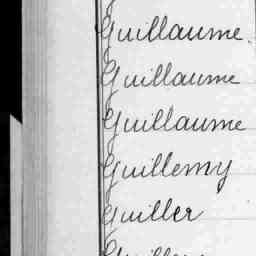 Guillaume
Guillaume
Guillaume
Guillemy
Guiller